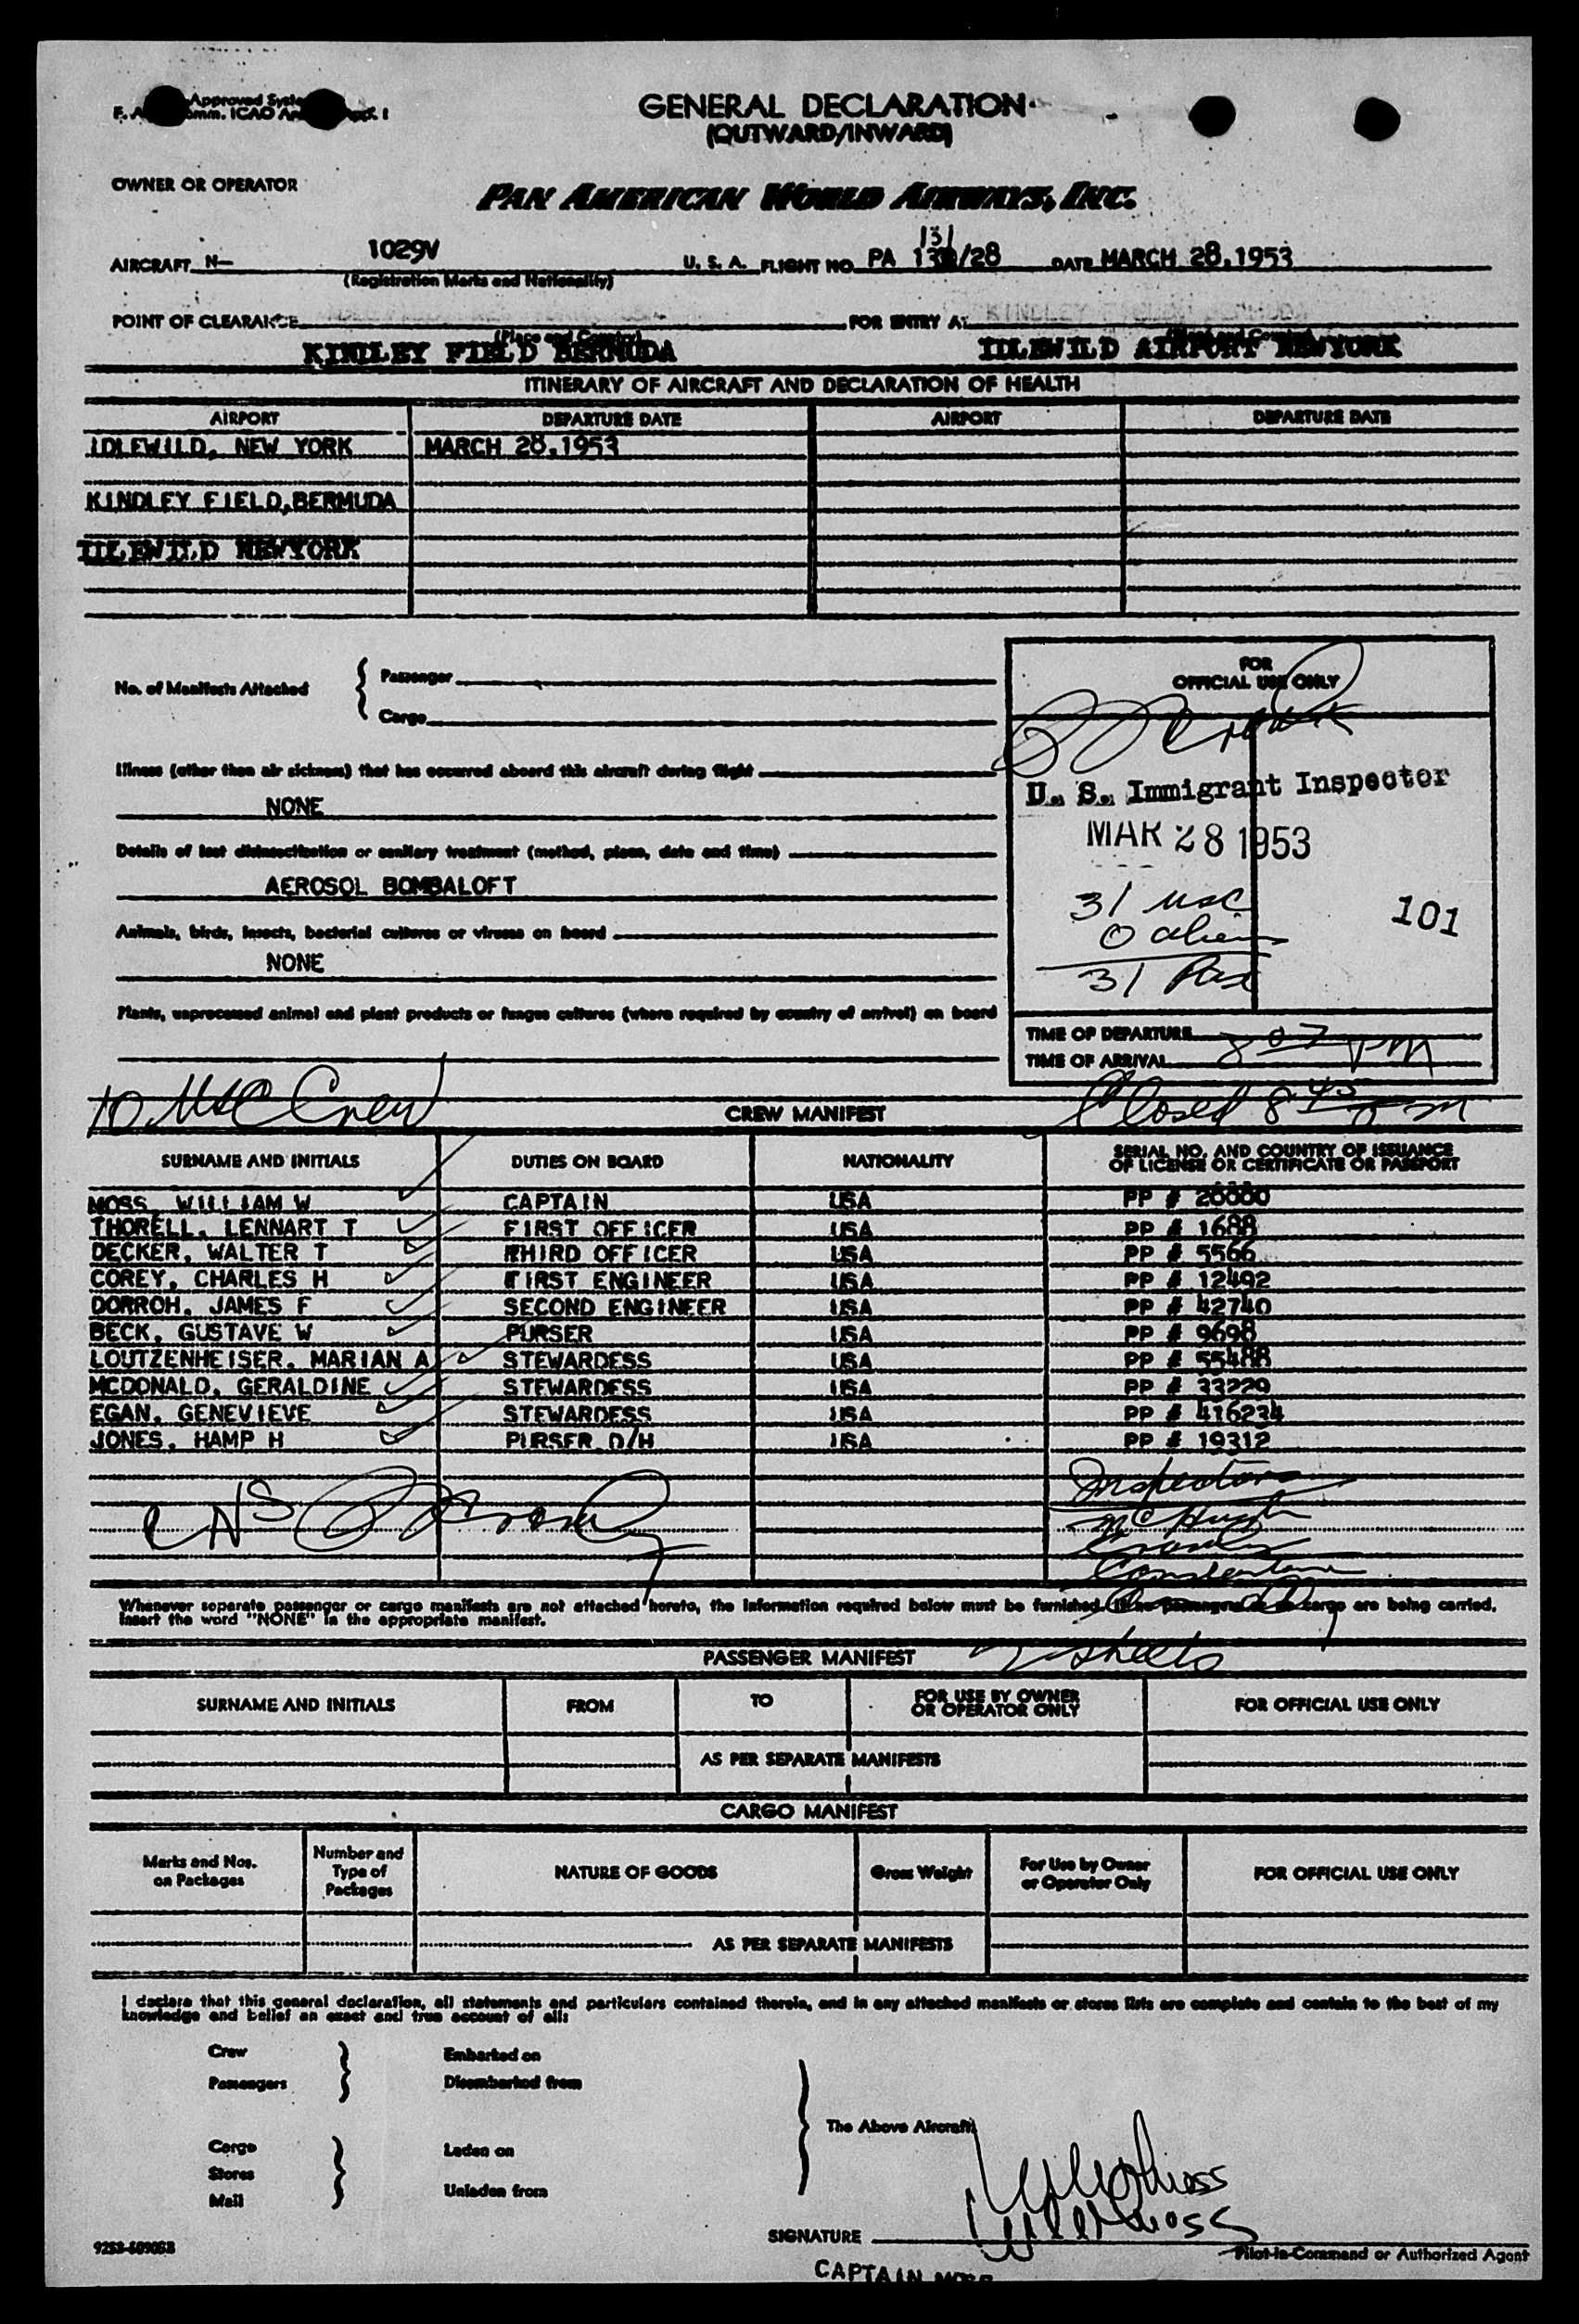 GENERAL DECLARATION
(OUTWARD/INWARD)
OWNER OR OPERATOR
PAN AMERICAN WORLD AIRWAYS, INC.
AIRCRAFT N— 1029V U. S. A. FLIGHT NO. PA 131/28 DATE MARCH 28,1953
(Registration Marks and Nationality)
POINT OF CLEARANCE FOR ENTRY AT
(Place and Country) (Place and Country)
KINDLEY FIELD BERMUDA IDLEWILD AIRPORT NEWYORK
ITINERARY OF AIRCRAFT AND DECLARATION OF HEALTH
AIRPORT DEPARTURE DATE AIRPORT DEPARTURE DATE
IDLEWILD, NEW YORK MARCH 28,1953
KINDLEY FIELD,BERMUDA
IDLEWILD NEWYORK
No. of Manifests Attached
Passenger
Cargo
FOR
OFFICIAL USE ONLY
Illness (other than air sickness) that has occurred aboard this aircraft during flight
NONE
U. S. Immigrant Inspector
MAR 28 1953
Details of last disinsectization or sanitary treatment (method, place, date and time)
AEROSOL BOMBALOFT
31 USC
101
0 aliens
31 Pax
Animals, birds, insects, bacterial cultures or viruses on board
NONE
Plants, unprocessed animal and plant products or fungus cultures (where required by country of arrival) on board
TIME OF DEPARTURE
TIME OF ARRIVAL 8 07 PM
10 USC Crew
CREW MANIFEST
Closed 8 45 pm
SURNAME AND INITIALS DUTIES ON BOARD NATIONALITY SERIAL NO. AND COUNTRY OF ISSUANCE
OF LICENSE OR CERTIFICATE OR PASSPORT
MOSS, WILLIAM W CAPTAIN USA PP # 20000
THORELL, LENNART T FIRST OFFICER USA PP # 1688
DECKER, WALTER T THIRD OFFICER USA PP # 5566
COREY, CHARLES H FIRST ENGINEER USA PP # 12492
DORROH, JAMES F SECOND ENGINEER USA PP # 42740
BECK, GUSTAVE W PURSER USA PP # 9698
LOUTZENHEISER, MARIAN A STEWARDESS USA PP # 55488
MCDONALD, GERALDINE STEWARDESS USA PP # 33229
EGAN, GENEVIEVE STEWARDESS USA PP # 416234
JONES, HAMP H PURSER D/H USA PP # 19312
Inspectors
McHugh
Whenever separate passenger or cargo manifests are not attached hereto, the information required below must be furnished. If no passengers or no cargo are being carried,
insert the word "NONE" in the appropriate manifest.
PASSENGER MANIFEST
sheets
SURNAME AND INITIALS FROM TO FOR USE BY OWNER
OR OPERATOR ONLY FOR OFFICIAL USE ONLY
AS PER SEPARATE MANIFESTS
CARGO MANIFEST
Marks and Nos.
on Packages
Number and
Type of
Packages
NATURE OF GOODS
Gross Weight
For Use by Owner
or Operator Only
FOR OFFICIAL USE ONLY
AS PER SEPARATE MANIFESTS
I declare that this general declaration, all statements and particulars contained therein, and in any attached manifests or stores lists are complete and contain to the best of my
knowledge and belief an exact and true account of all:
Crew Embarked on
Passengers Disembarked from
The Above Aircraft
Cargo Laden on
Stores
Mail Unladen from
SIGNATURE
Pilot-in-Command or Authorized Agent
CAPTAIN MOSS